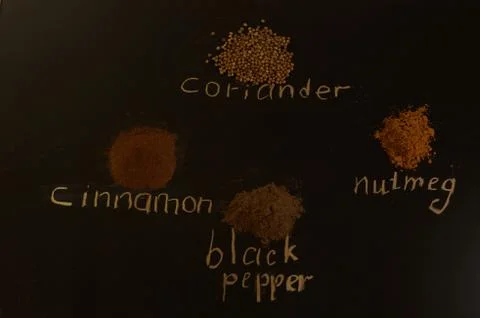 coriander
nutmeg
cinnamon
black
pepper